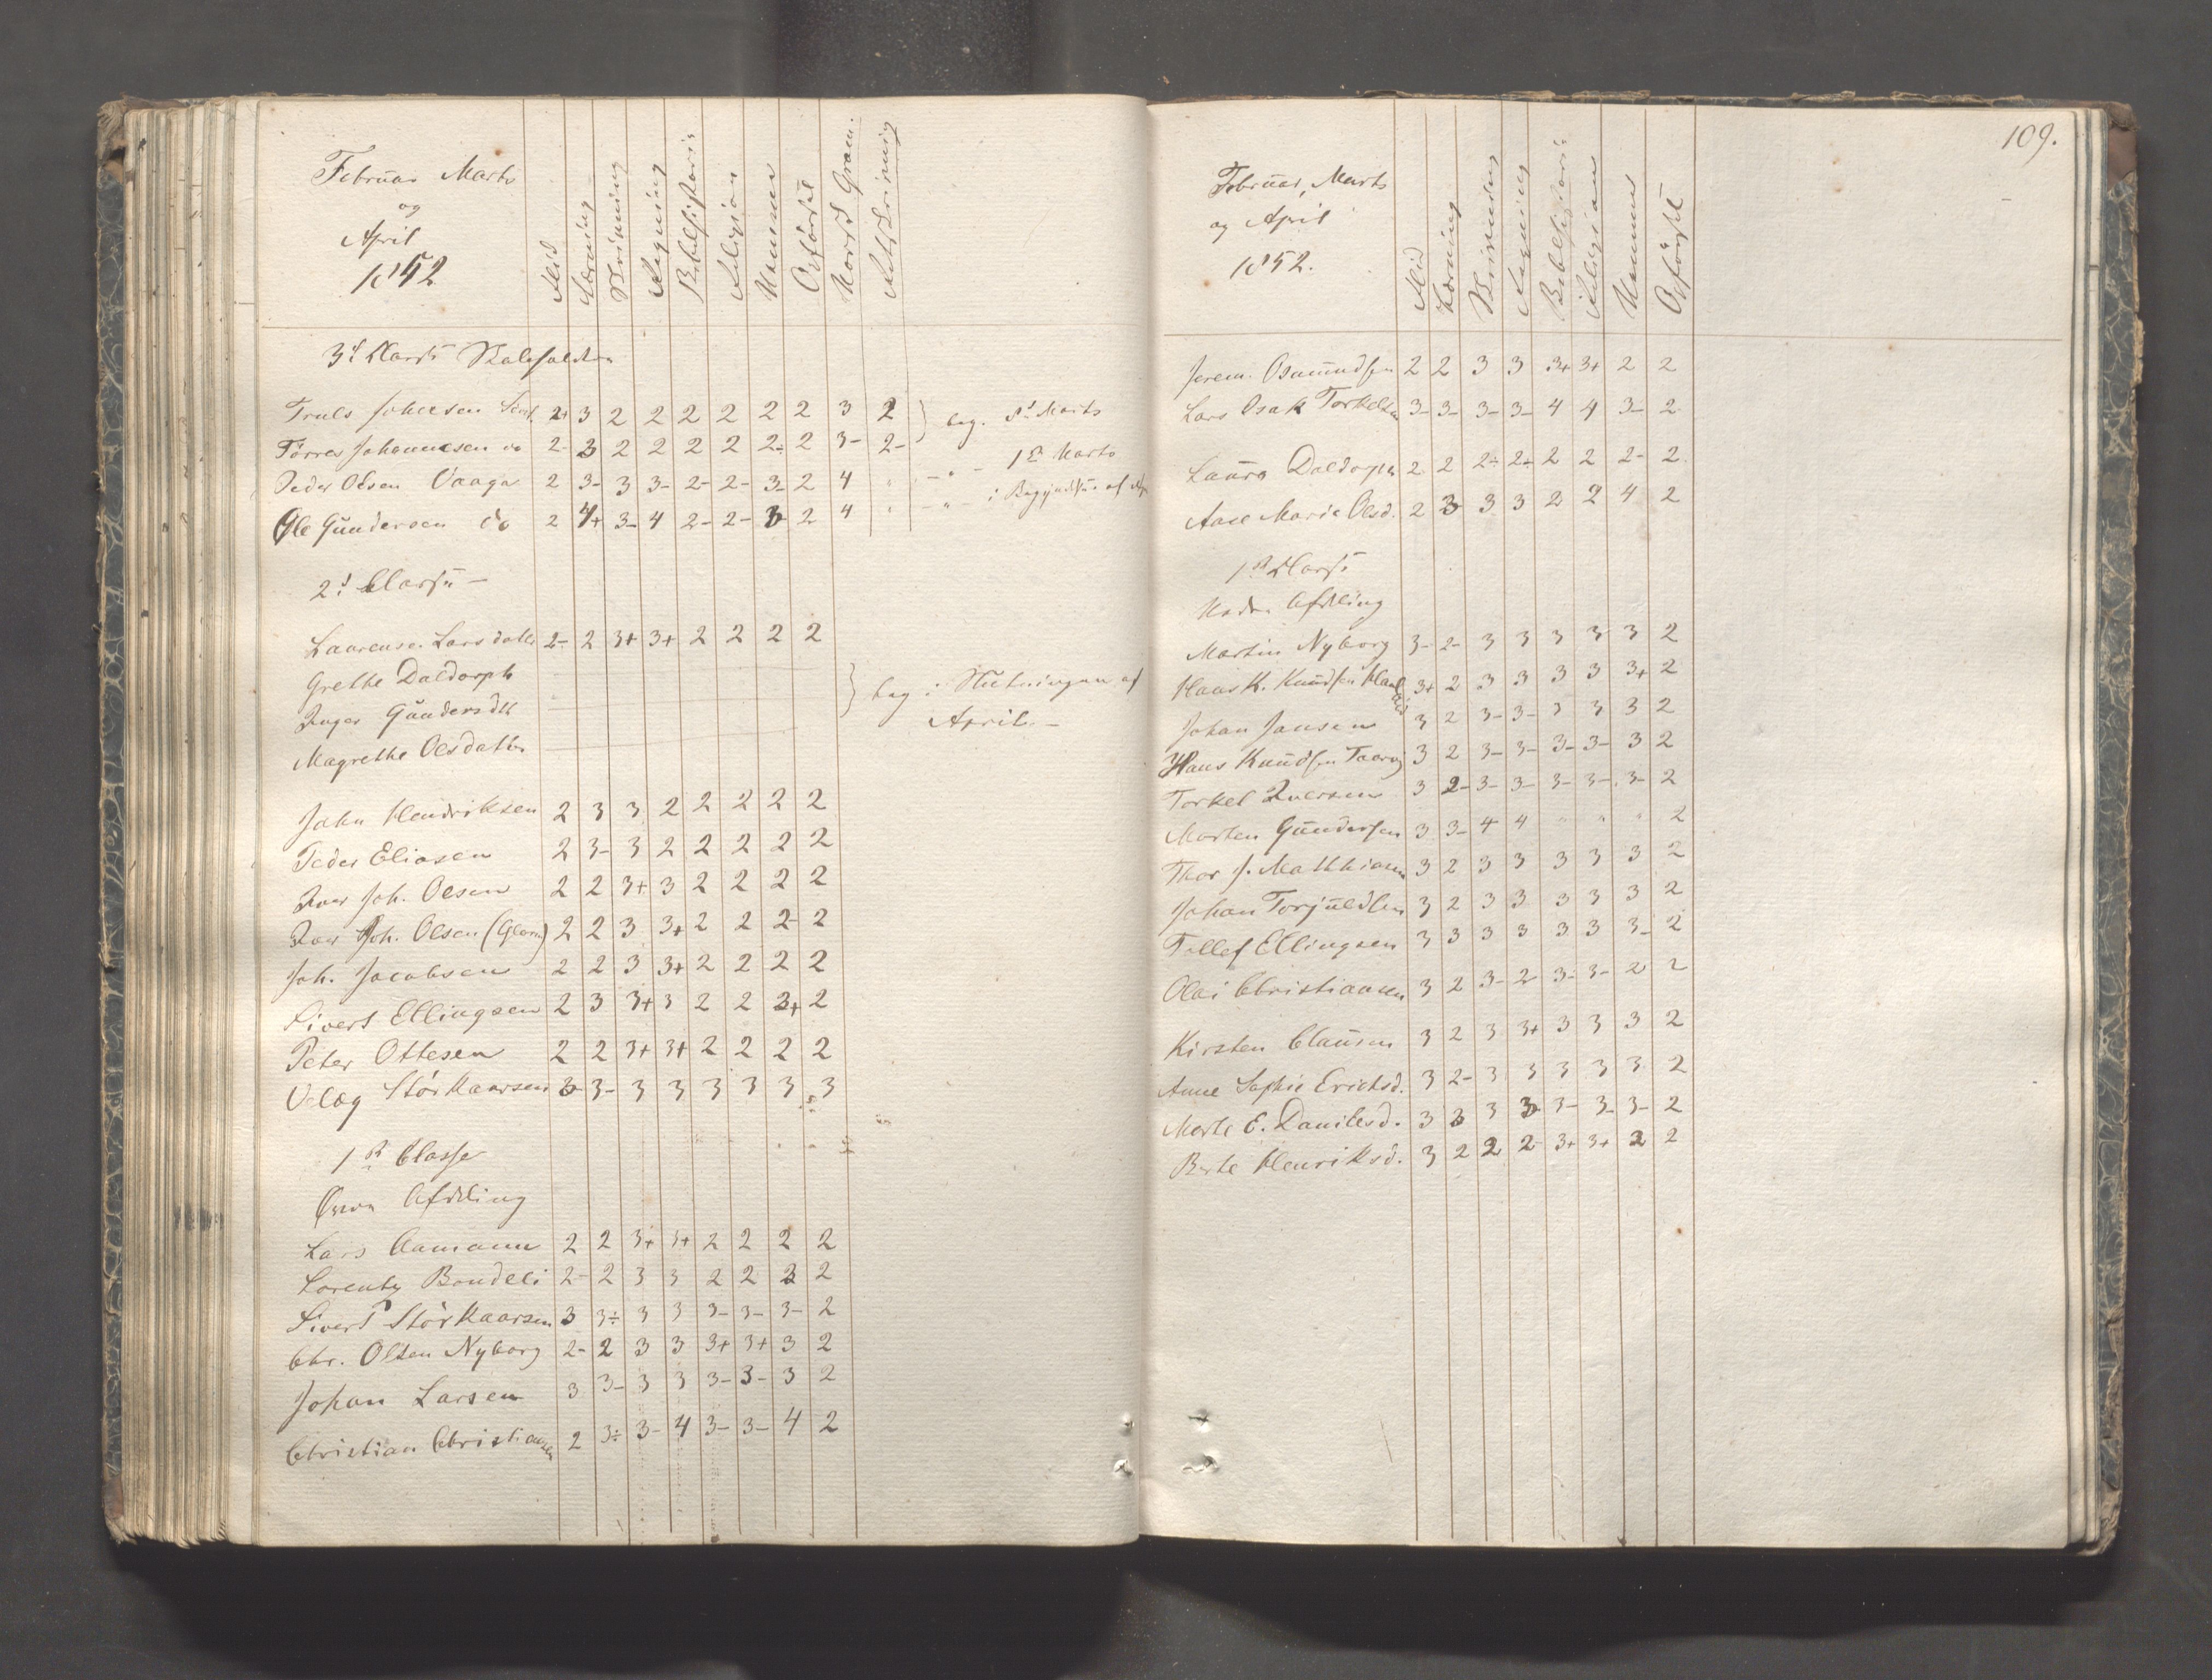 Februar Marts
og
April
1852
Flid
Læsning
Skrivning
Regning
Bibelhistorie
Religion
Udenad
Opførsel
Norsk Gram.
Retskrivning
3d Classe
Truls Johnsen 2+ 3 2 2 2 2 2 2 3 2 } beg. Marts
Törres Johannesen do 2- 3 2 2 2 2 2÷ 2 3- 2-
Peder Olsen Vaaga 2 3- 3 3- 2- 2- 3- 2 4 " - " - 1st Marts
Ole Gundersen do 2 4+ 3- 4 2- 2- 3 2 4 " - " - i Begyndelsen af
2d Classe -
Laurense Larsdatter 2- 2 3+ 3+ 2 2 2 2
Grethe Daldorph
Inger Gundersdtt } beg i Slutningen af
Magrethe Olsdatter April -
John Hendriksen 2 3 3 2 2 2 2 2
Peder Eliasen 2 3- 3 2 2 2 2 2
Iver Joh. Olsen 2 2 3+ 3 2 2 2 2
Iver Joh. Olsen (Glarm) 2 2 3 3+ 2 2 2- 2
Joh. Jacobsen 2 2 3 3+ 2 2 2 2
Sivert Ellingsen 2 3 3+ 3 2 2 3+ 2
Peter Ottesen 2 2 3+ 3+ 2 2 2 2
Störkaarsen 3 3- 3 3 3 3 3 3
1st Classe
Øvre Afdeling
Lars Aamann 2 2 3+ 3+ 2 2 2 2
Lorentz Bondeli 2- 2 3 3 2 2 2 2
Sivert Störkaarsen 3 3÷ 3 3 3- 3- 3- 2
Chr. Olsen Nyborg 2- 2 3 3 3+ 3+ 3 2
Johan Larsen 3 3- 3 3 3- 3- 3 2
Christian Christiansen 2 3÷ 3- 4 3- 3- 4 2
109.
Februar, Marts
og April
1852.
Flid
Læsning
Skrivning
Regning
Bibelhistorie
Religion
Udenad
Opførsel
Jerem. Osmundsen 2 2 3 3 3+ 3+ 2 2
Lars Osak Torkelsen 3- 3- 3- 3- 4 4 3- 2
Laura Daldorph 2 2 2÷ 2÷ 2 2 2- 2
Aase Marie Olsd. 2 3 3 3 2 2 4 2
1st Classe
Nedre Afdeling
Martin Nyborg 3- 2- 3 3 3 3 3 2
Hans K. Knudsen 3+ 2 3 3 3 3 3+ 2
Johan Jansen 3 2 3- 3- 3 3 3 2
Hans Knudsen 3 2 3- 3- 3- 3- 3 2
Torkel Iversen 3 2- 3- 3- 3- 3- 3- 2
Morten Gundersen 3 3- 4 4 " " " 2
Thor J. Matthiasen 3 2 3 3 3 3 3 2
Johan Torjuldsen 3 2 3 3 3 3 3 2
Tollef Ellingsen 3 3 3 3 3 3 3- 2
Olai Christiansen 3 2 3- 2 3- 3- 2 2
Kirsten Clausen 3 2 3 3+ 3 3 3 2
Anne Sophie Erichsd. 3 2- 3 3 3 3 3 2
Marte E. Danielsd. 3 3 3 3 3- 3- 3- 2
Berte Henriksd. 3 2 2 2- 3+ 3+ 2 2